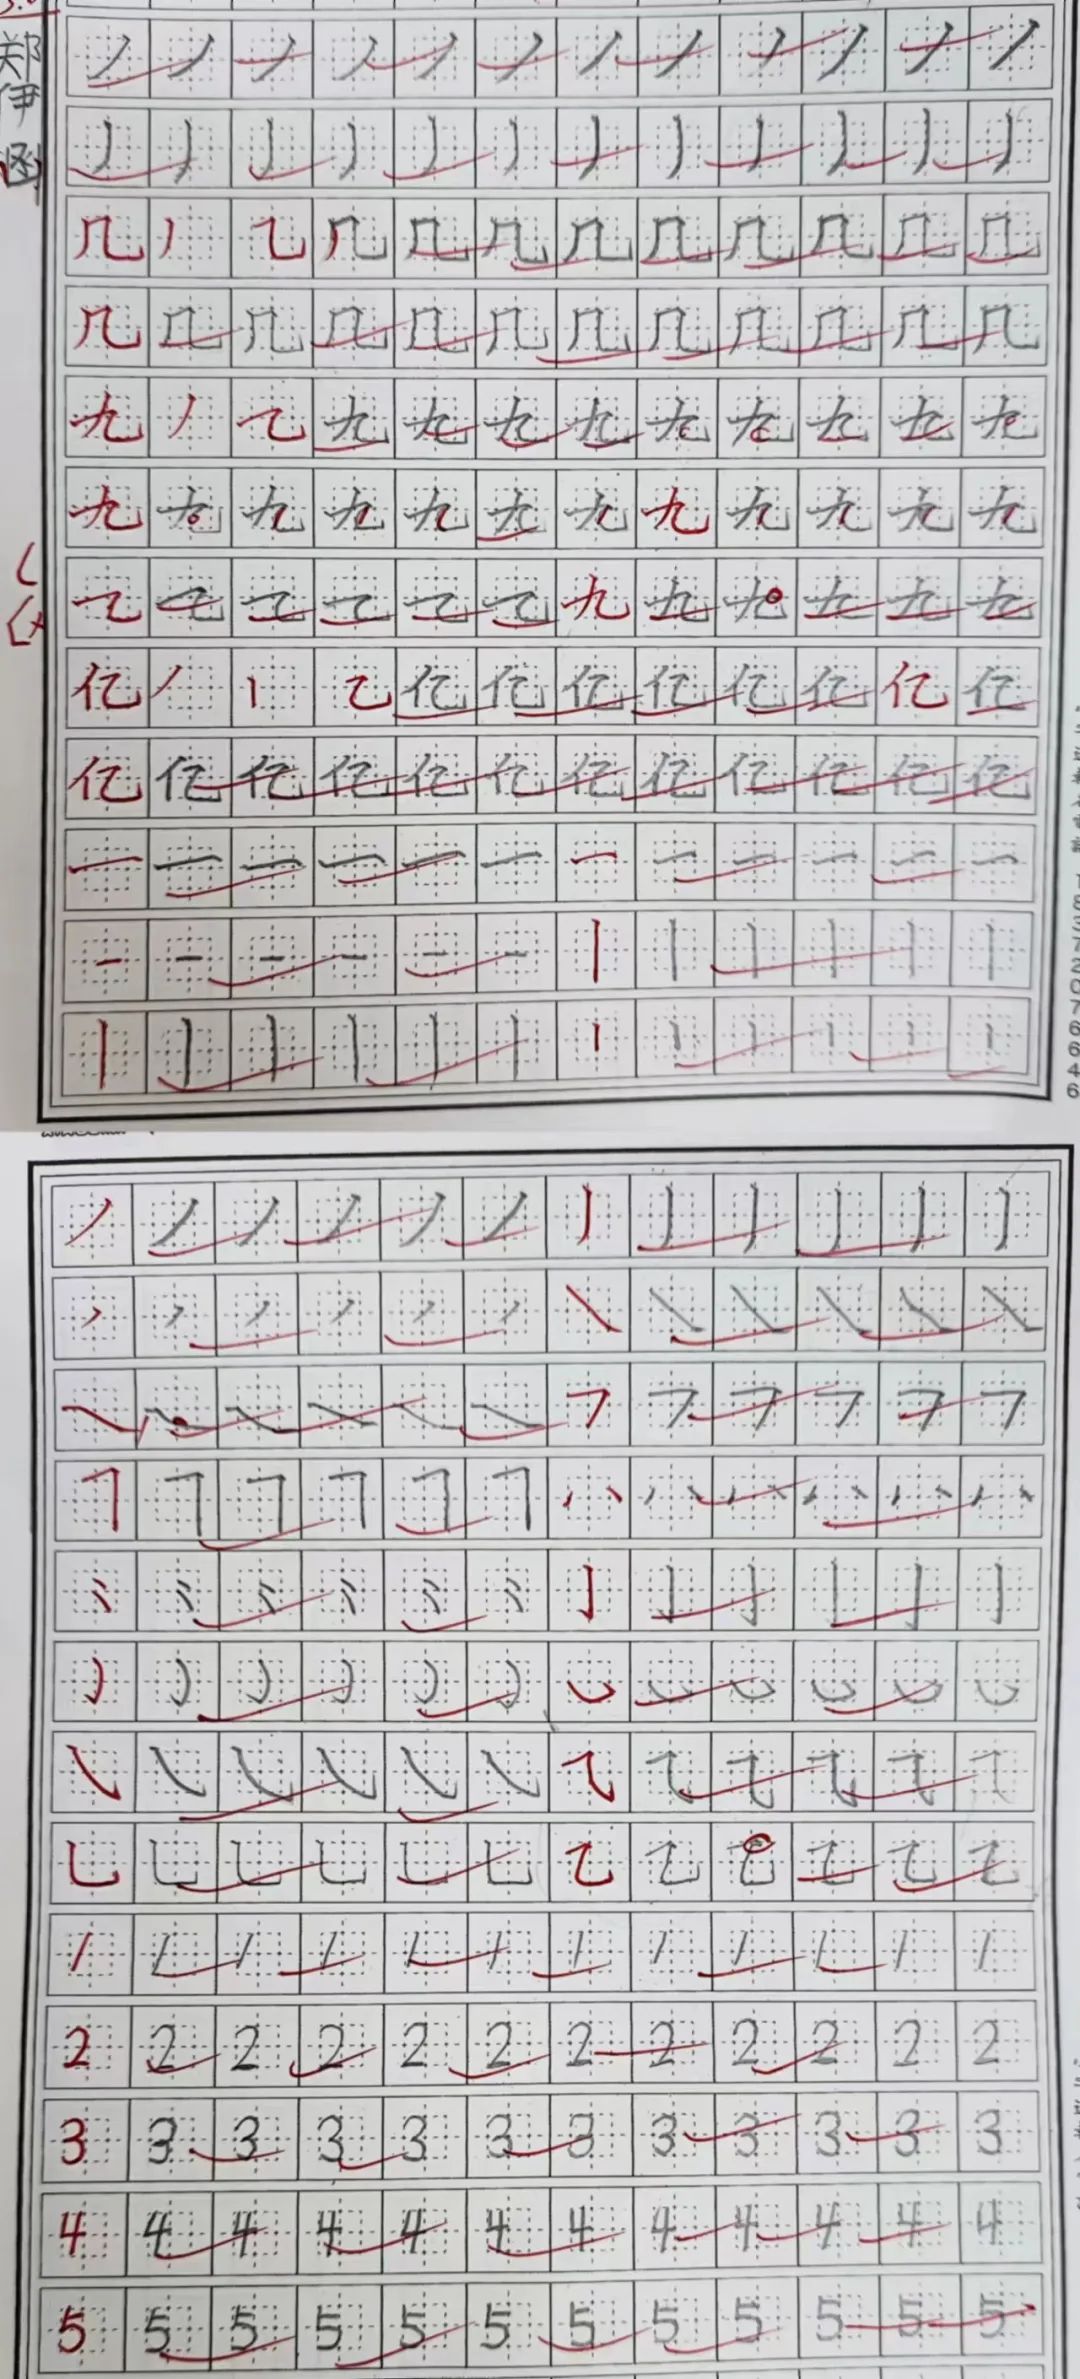 郑伊函
丿 丿 丿 丿 丿 丿 丿 丿 丿 丿 丿 丿
丿 丿 丿 丿 丿 丿 丿 丿 丿 丿 丿 丿
几 丿 ㇈ 几 几 几 几 几 几 几 几 几
几 几 几 几 几 几 几 几 几 几 几 几
九 丿 ㇈ 九 九 九 九 九 九 九 九 九
九 九 九 九 九 九 九 九 九 九 九 九
㇈ ㇈ ㇈ ㇈ ㇈ ㇈ 九 九 九 九 九 九
亿 丿 丨 乙 亿 亿 亿 亿 亿 亿 亿 亿
亿 亿 亿 亿 亿 亿 亿 亿 亿 亿 亿 亿
一 一 一 一 一 一 一 一 一 一 一 一
一 一 一 一 一 一 丨 丨 丨 丨 丨 丨
丨 丨 丨 丨 丨 丨 丨 丨 丨 丨 丨 丨
18372076646
丿 丿 丿 丿 丿 丿 丿 丿 丿 丿 丿 丿
㇒ ㇒ ㇒ ㇒ ㇒ ㇒ ㇏ ㇏ ㇏ ㇏ ㇏ ㇏
㇏ ㇏ ㇏ ㇏ ㇏ ㇏ ㇇ ㇇ ㇇ ㇇ ㇇ ㇇
𠃍 𠃍 𠃍 𠃍 𠃍 𠃍 八 八 八 八 八 八
⺀ ⺀ ⺀ ⺀ ⺀ ⺀ 亅 亅 亅 亅 亅 亅
㇁ ㇁ ㇁ ㇁ ㇁ ㇁ ㇃ ㇃ ㇃ ㇃ ㇃ ㇃
㇂ ㇂ ㇂ ㇂ ㇂ ㇂ ⺄ ⺄ ⺄ ⺄ ⺄ ⺄
乚 乚 乚 乚 乚 乚 乙 乙 乙 乙 乙 乙
1 1 1 1 1 1 1 1 1 1 1 1
2 2 2 2 2 2 2 2 2 2 2 2
3 3 3 3 3 3 3 3 3 3 3 3
4 4 4 4 4 4 4 4 4 4 4 4
5 5 5 5 5 5 5 5 5 5 5 5